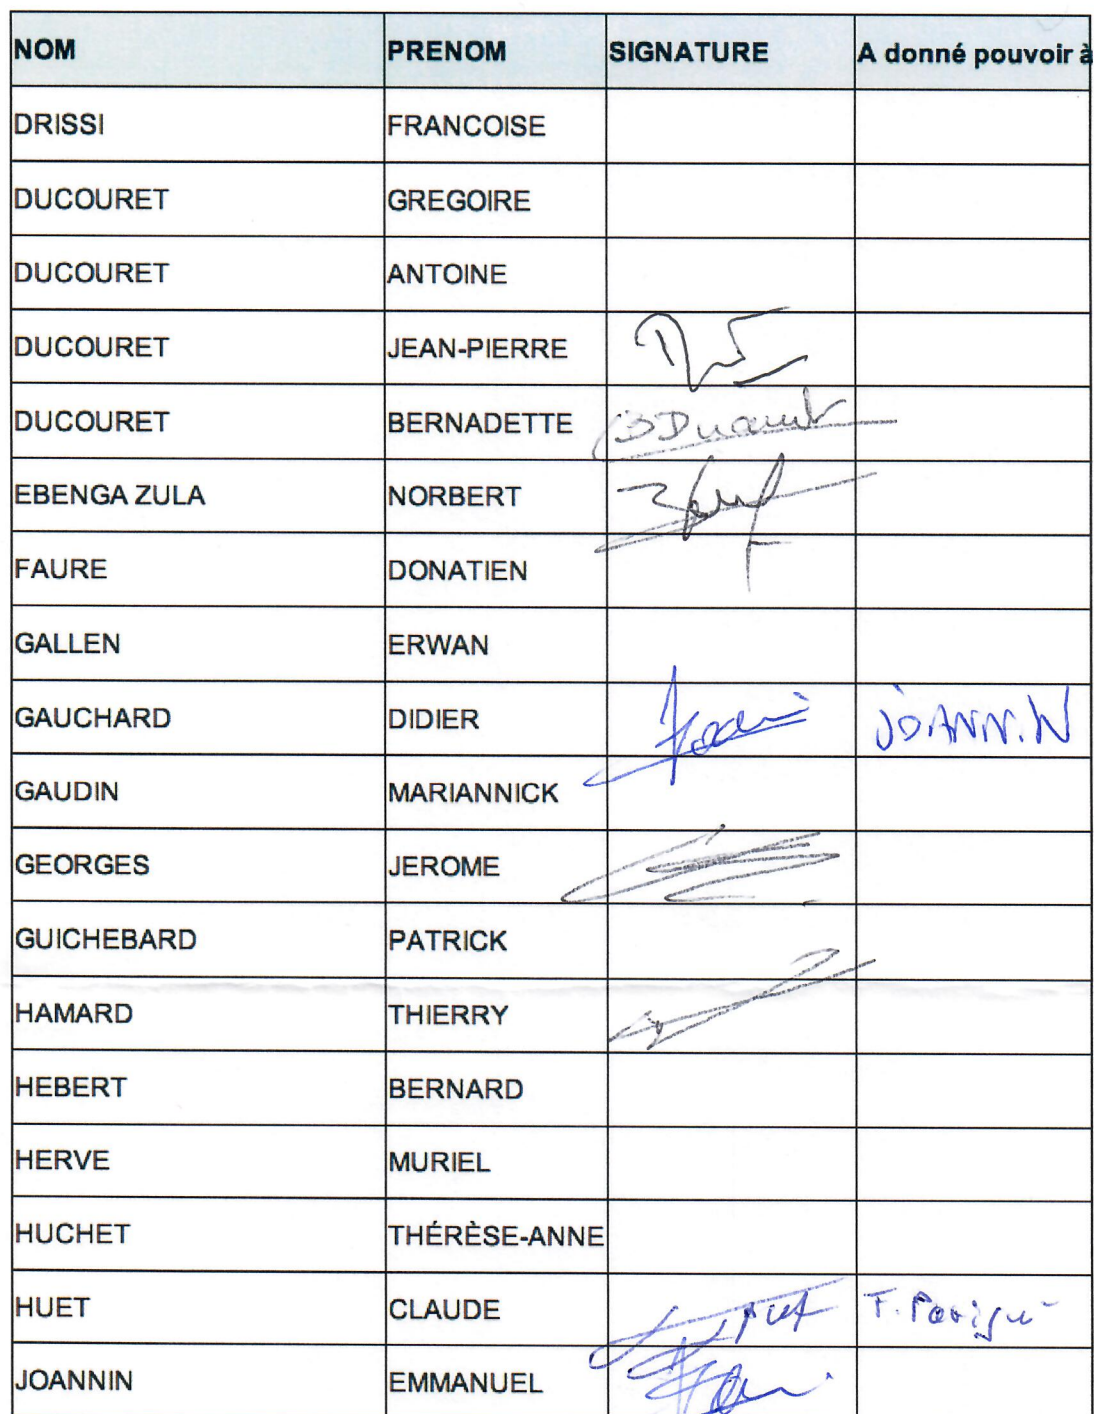 NOM PRENOM SIGNATURE A donné pouvoir à
DRISSI FRANCOISE
DUCOURET GREGOIRE
DUCOURET ANTOINE
DUCOURET JEAN-PIERRE
DUCOURET BERNADETTE BDucouret
EBENGA ZULA NORBERT
FAURE DONATIEN
GALLEN ERWAN
GAUCHARD DIDIER JOANNIN
GAUDIN MARIANNICK
GEORGES JEROME
GUICHEBARD PATRICK
HAMARD THIERRY
HEBERT BERNARD
HERVE MURIEL
HUCHET THÉRÈSE-ANNE
HUET CLAUDE
JOANNIN EMMANUEL